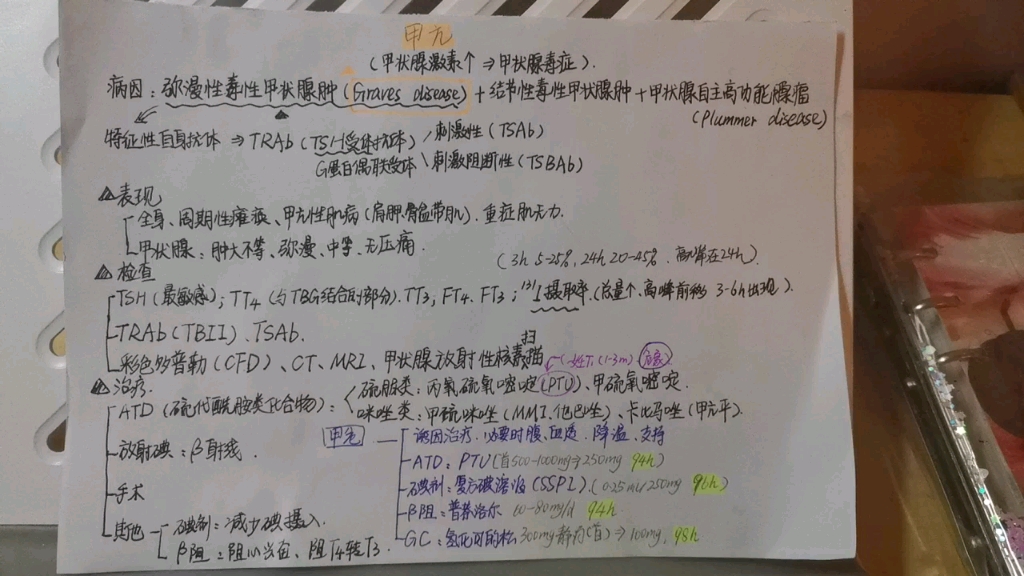 甲亢
(甲状腺激素↑ ⇒ 甲状腺毒症).
病因：弥漫性毒性甲状腺肿 (Graves disease) + 结节性毒性甲状腺肿 + 甲状腺自主高功能腺瘤
(Plummer disease)
特征性自身抗体 ⇒ TRAb (TSH受体抗体) / 刺激性 (TSAb)
G蛋白偶联受体 \ 刺激阻断性 (TSBAb)
表现
全身、周期性瘫痪、甲亢性肌病 (肩胛骨盆带肌). 重症肌无力.
甲状腺：肿大不等、弥漫、中等、无压痛.
检查
(3h 5-25%, 24h 20-45%. 高峰在24h).
TSH (最敏感); TT4 (与TBG结合的部分). TT3, FT4. FT3; 131I摄取率. (总量↑、高峰前移 3-6h出现).
TRAb (TBII). TSAb.
彩色多普勒 (CFD)、CT、MRI、甲状腺放射性核素扫描
治疗
妊T1 (1-3m)
ATD (硫代酰胺类化合物)：
硫脲类：丙氧硫氧嘧啶 (PTU)、甲硫氧嘧啶.
咪唑类：甲硫咪唑 (MMI. 他巴唑)、卡比马唑 (甲亢平).
放射碘：β射线.
手术
其他
碘剂：减少碘摄入.
β阻：阻心兴奋、阻T4转T3.
诱因治疗. 必要时腹、血透. 降温. 支持
ATD：PTU (首500-1000mg→250mg q4h
碘剂：复方碘溶液 (SSPI) (0.25ml/250mg q6h)
β阻：普萘洛尔 60-80mg/d q4h
GC：氢化可的松 300mg静滴(首) ⇒ 100mg, q8h